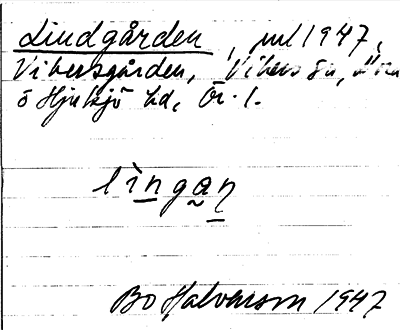 Lindgården, jul 1947,
Vibersgården, Vibers sn,
ö Hjulsjö sd, Ör. l.
lìngan
Bo Halvarson 1947